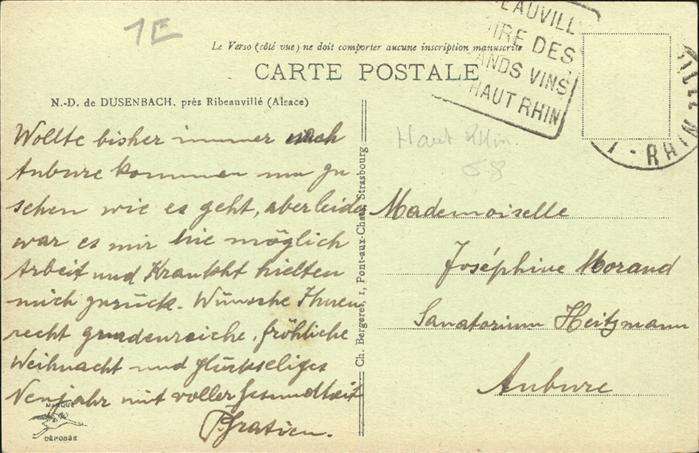 1E
Le Verso (côté vue) ne doit comporter aucune inscription manuscrite
CARTE POSTALE
EAUVILL
IRE DES
ANDS VINS
HAUT RHIN
T - RHIN
N.-D. de DUSENBACH, près Ribeauvillé (Alsace)
Haut Rhin.
68
Wollte bisher immer nach
Aubure kommen um zu
sehen wie es geht, aber leider
war es mir nie möglich
Arbeit und Krankht hielten
mich zurück. Wünsche Ihnen
recht gnadenreiche, fröhliche
Weihnacht und glückseliges
Neujahr mit voller Gesundheit
Gratien.
Ch. Bergeret, 1, Pont-aux-Chats, Strasbourg
Mademoiselle
Joséphine Morand
Sanatorium Heitzmann
Aubure
MARQUE
DÉPOSÉE